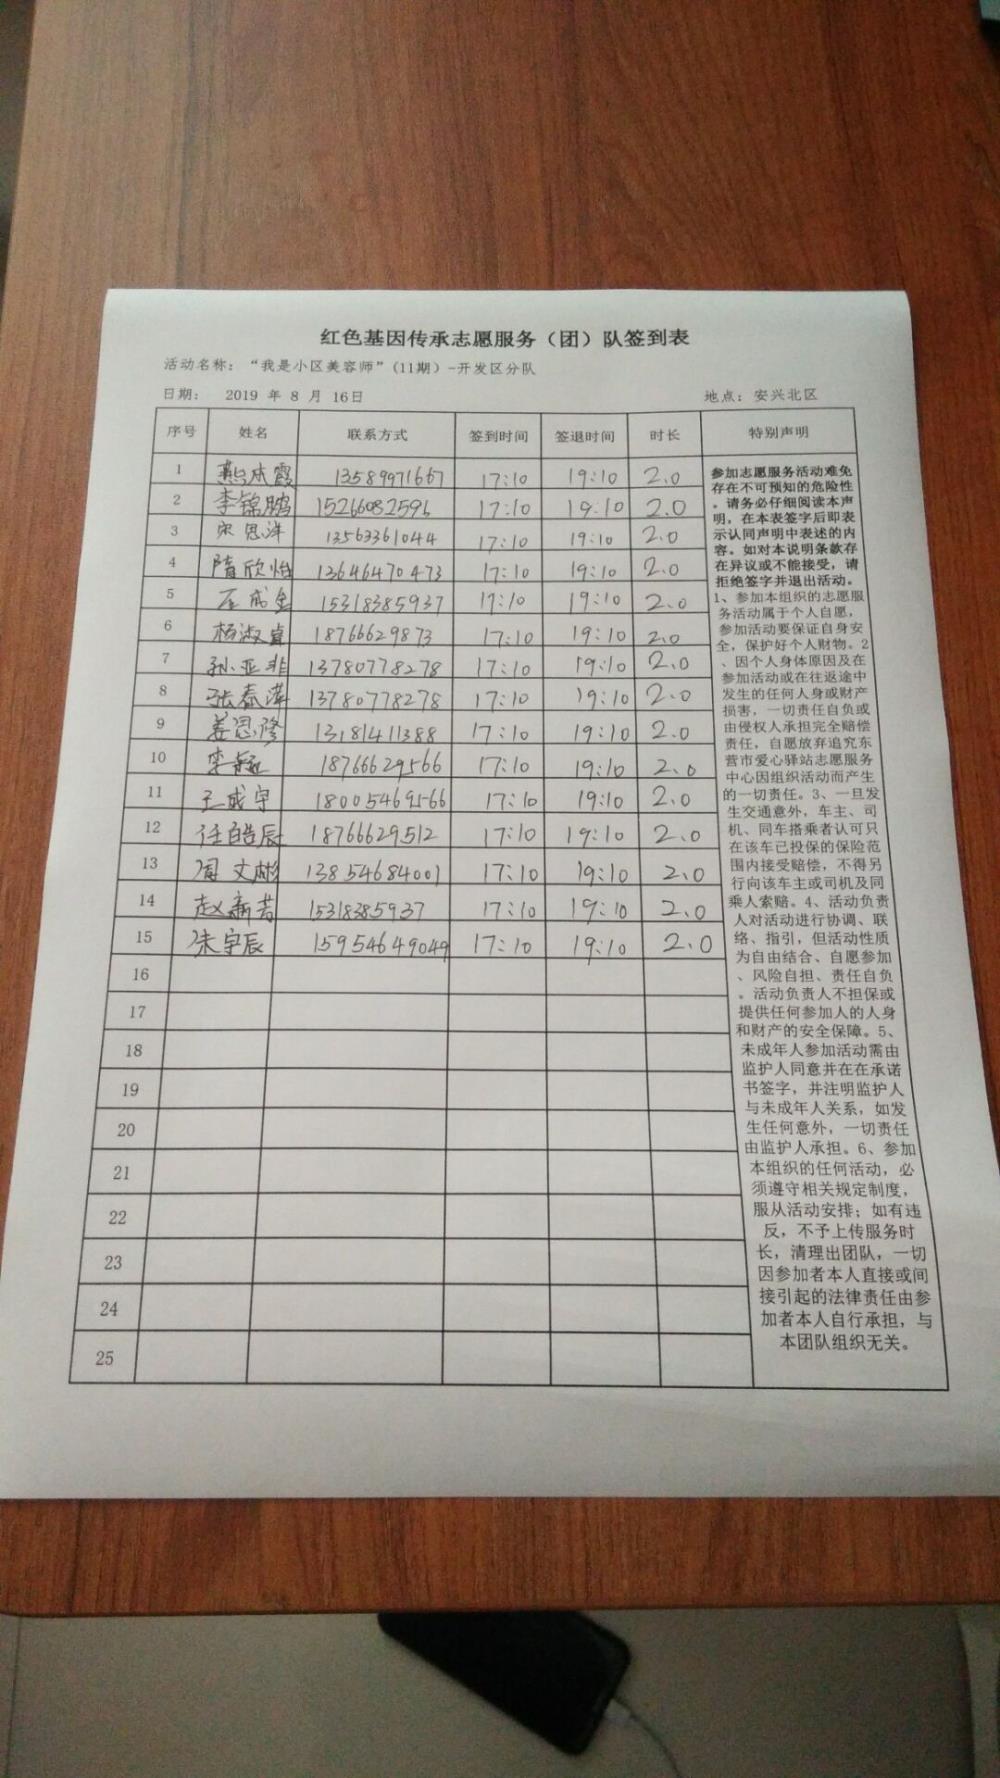 红色基因传承志愿服务（团）队签到表
活动名称：“我是小区美容师”(11期）-开发区分队
日期： 2019 年 8 月 16日 地点：安兴北区
序号 姓名 联系方式 签到时间 签退时间 时长 特别声明
1 13589971667 17:10 19:10 2.0
2 李锦鹏 15266082596 17:10 19:10 2.0
3 宋思洋 13563361044 17:10 19:10 2.0
4 隋欣怡 13646470473 17:10 19:10 2.0
5 15318385937 17:10 19:10 2.0
6 18766629873 17:10 19:10 2.0
7 孙亚非 13780778278 17:10 19:10 2.0
8 张春萍 13780778278 17:10 19:10 2.0
9 姜恩隆 13181411388 17:10 19:10 2.0
10 18766629566 17:10 19:10 2.0
11 王成宇 18005469566 17:10 19:10 2.0
12 任皓辰 18766629512 17:10 19:10 2.0
13 周文彬 13854684001 17:10 19:10 2.0
14 赵新芳 15318385937 17:10 19:10 2.0
15 朱宇辰 15954649049 17:10 19:10 2.0
16
17
18
19
20
21
22
23
24
25
参加志愿服务活动难免
存在不可预知的危险性
。请务必仔细阅读本声
明，在本表签字后即表
示认同声明中表述的内
容。如对本说明条款存
在异议或不能接受，请
拒绝签字并退出活动。
1、参加本组织的志愿服
务活动属于个人自愿，
参加活动要保证自身安
全，保护好个人财物。2
、因个人身体原因及在
参加活动或在往返途中
发生的任何人身或财产
损害，一切责任自负或
由侵权人承担完全赔偿
责任，自愿放弃追究东
营市爱心驿站志愿服务
中心因组织活动而产生
的一切责任。3、一旦发
生交通意外，车主、司
机、同车搭乘者认可只
在该车已投保的保险范
围内接受赔偿，不得另
行向该车主或司机及同
乘人索赔。4、活动负责
人对活动进行协调、联
络、指引，但活动性质
为自由结合、自愿参加
、风险自担、责任自负
。活动负责人不担保或
提供任何参加人的人身
和财产的安全保障。5、
未成年人参加活动需由
监护人同意并在在承诺
书签字，并注明监护人
与未成年人关系，如发
生任何意外，一切责任
由监护人承担。6、参加
本组织的任何活动，必
须遵守相关规定制度，
服从活动安排；如有违
反，不予上传服务时
长，清理出团队，一切
因参加者本人直接或间
接引起的法律责任由参
加者本人自行承担，与
本团队组织无关。